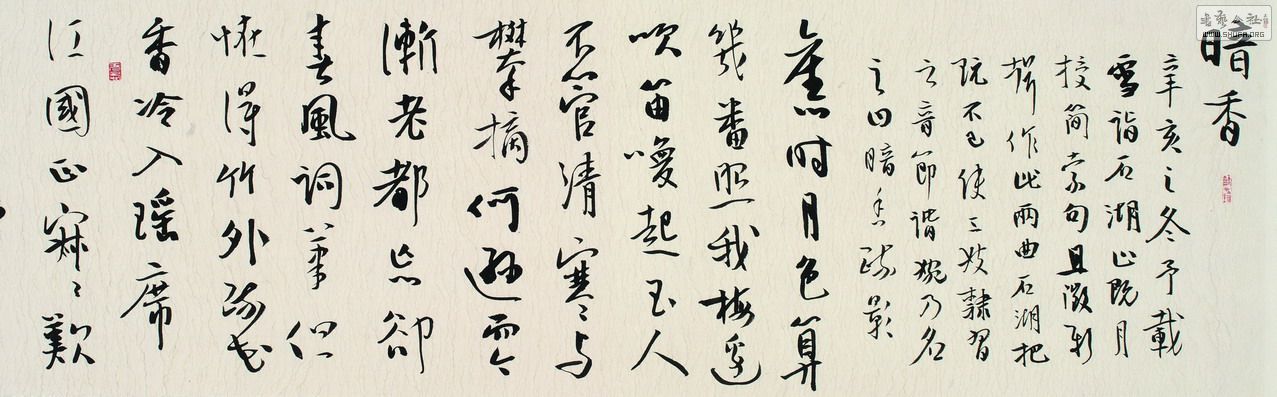 書藝公社
WWW.SHUFA.ORG
暗香
辛亥之冬予載
雪詣石湖止既月
授簡索句且徵新
聲作此兩曲石湖把
玩不已使妓隸習
之音節諧婉乃名
之曰暗香疏影
舊時月色算
幾番照我梅邊
吹笛喚起玉人
不管清寒与
攀摘何遜而今
漸老都忘卻
春風詞筆但
怪得竹外疏花
香冷入瑤席
江國正寂〻歎